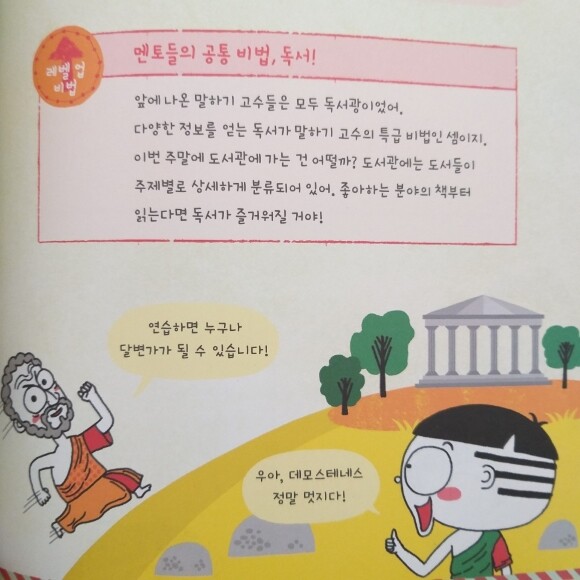 레벨 업
비법
멘토들의 공통 비법, 독서!
앞에 나온 말하기 고수들은 모두 독서광이었어.
다양한 정보를 얻는 독서가 말하기 고수의 특급 비법인 셈이지.
이번 주말에 도서관에 가는 건 어떨까? 도서관에는 도서들이
주제별로 상세하게 분류되어 있어. 좋아하는 분야의 책부터
읽는다면 독서가 즐거워질 거야!
연습하면 누구나
달변가가 될 수 있습니다!
우아, 데모스테네스
정말 멋지다!